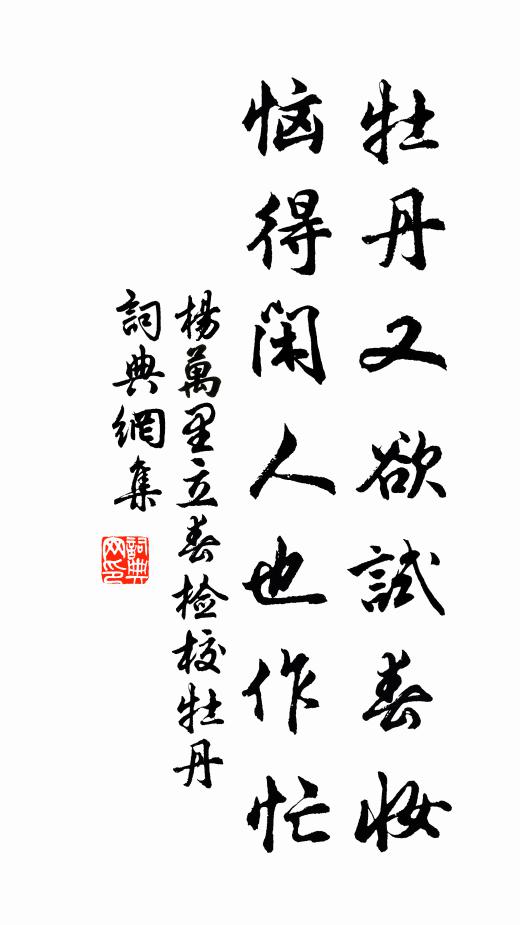 牡丹又欲試春妝
恼得閑人也作忙
楊萬里立春检校牡丹
詞典網集
詞典網印